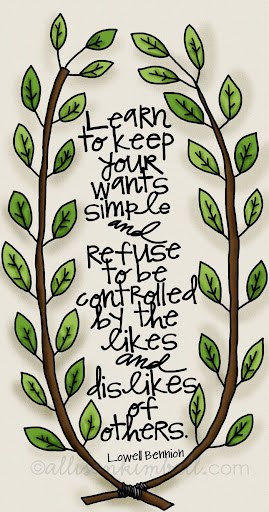 Learn
to keep
your
wants
simple
and
refuse
to be
controlled
by the
likes
and
dislikes
of
others.
Lowell Bennion
©allisonkimball.com